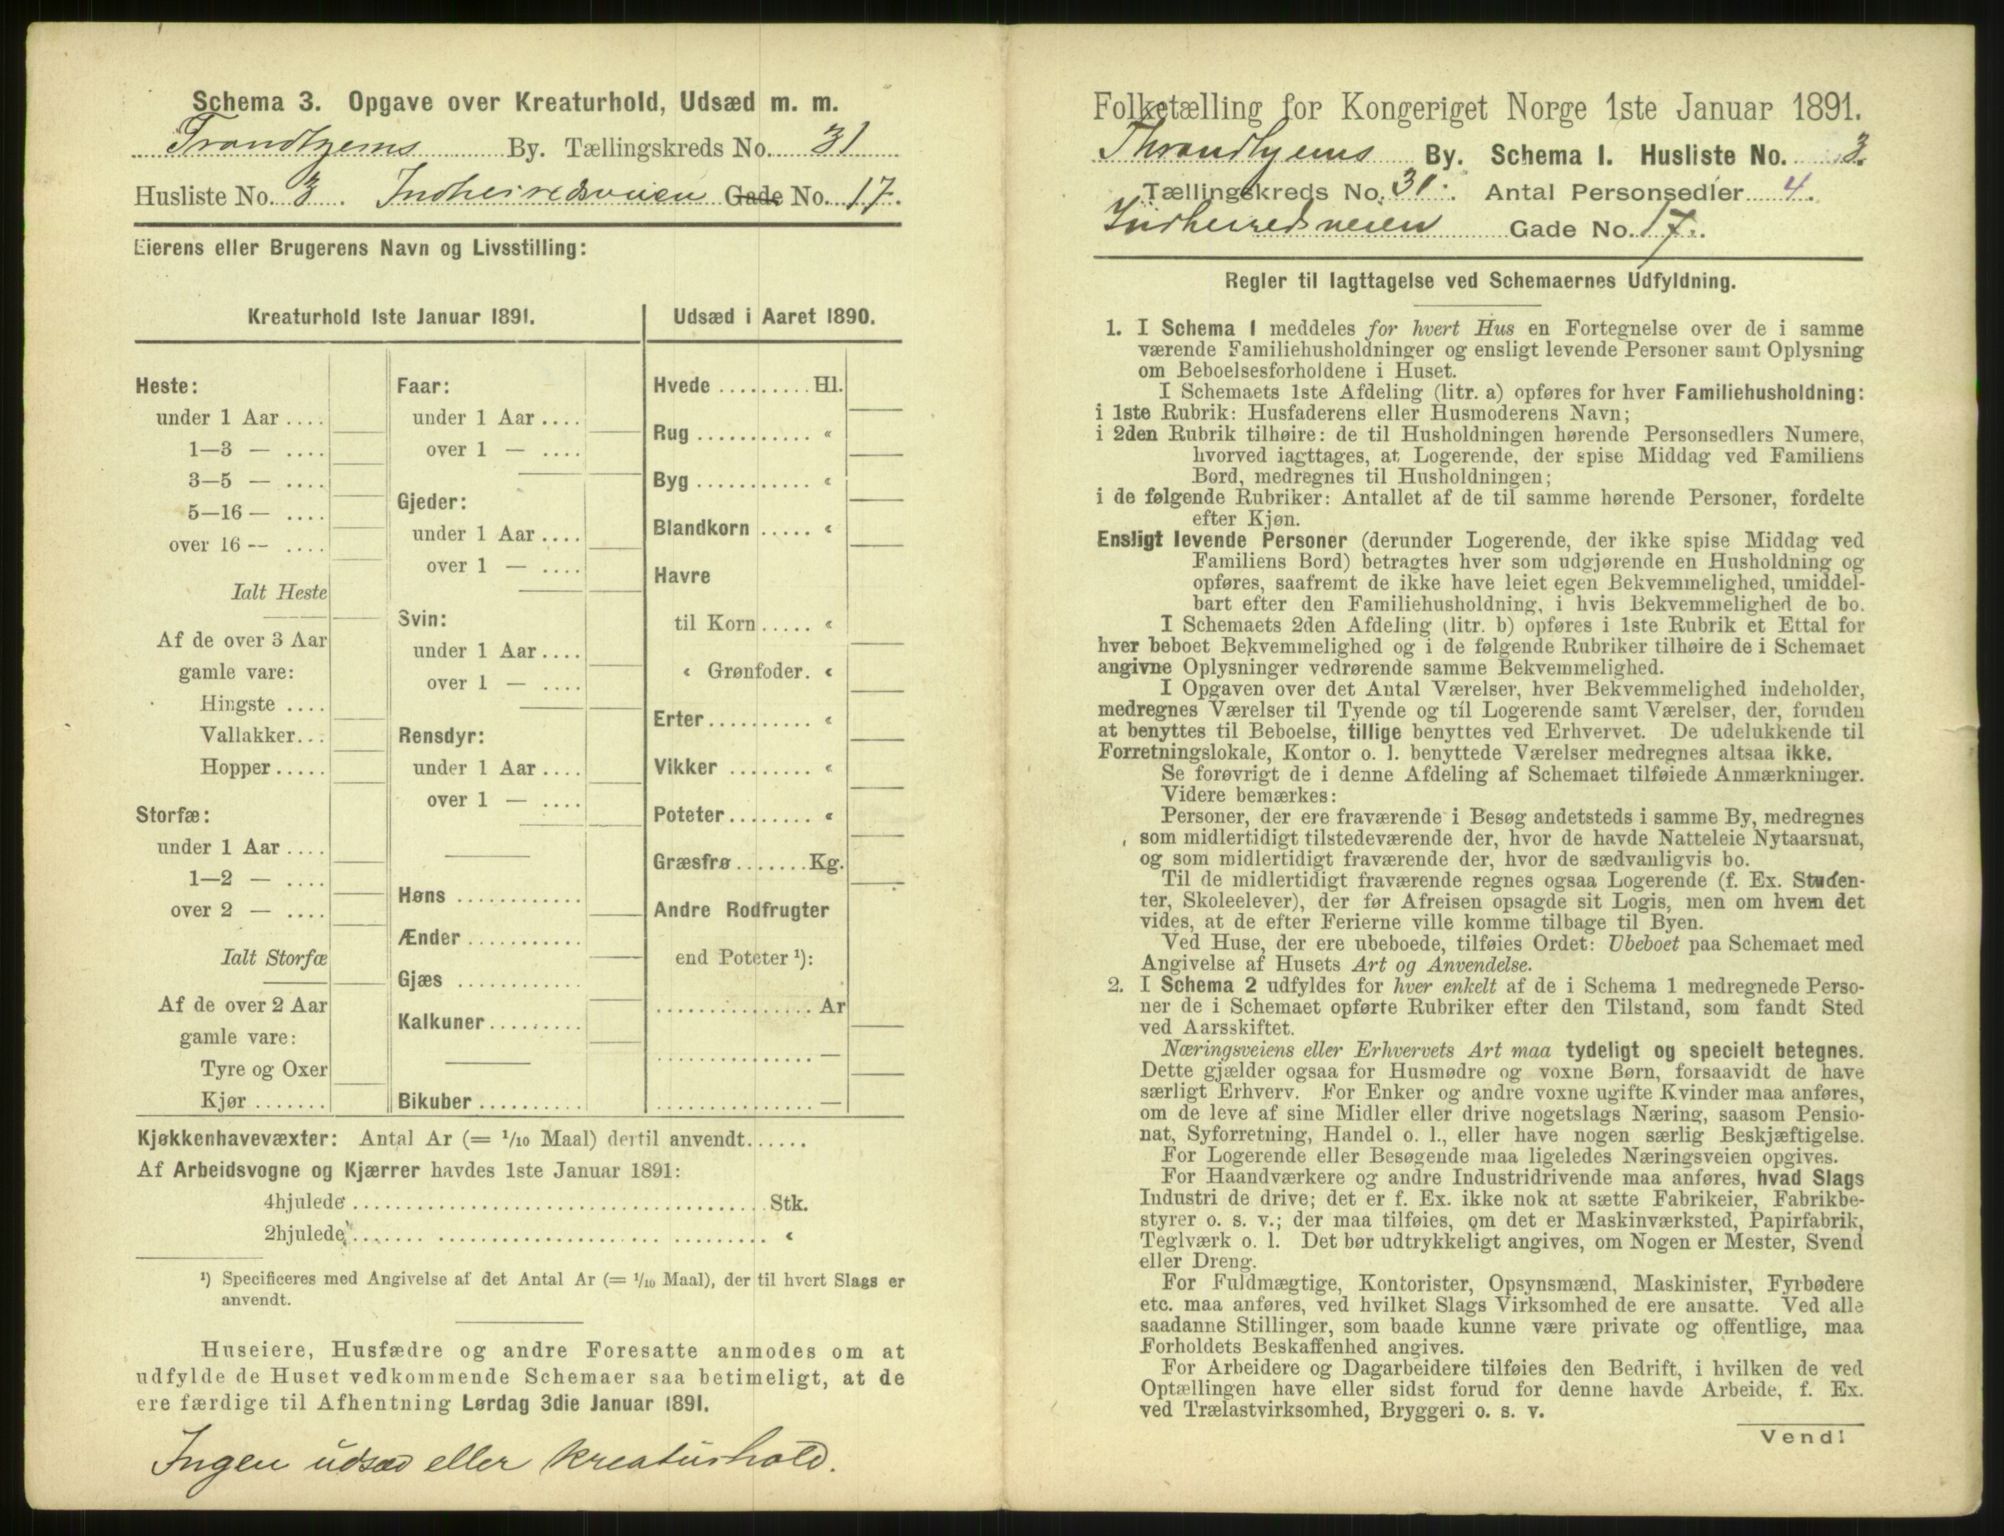 Schema 3. Opgave over Kreaturhold, Udsæd m. m.
Trondhjems By. Tællingskreds No. 31
Husliste No. 3. Indherredsveien Gade No. 17.
Eierens eller Brugerens Navn og Livsstilling:
Kreaturhold 1ste Januar 1891.
Heste:
under 1 Aar ....
1—3 — ....
3—5 — ....
5—16 — ....
over 16 — ....
Ialt Heste
Af de over 3 Aar
gamle vare:
Hingste ....
Vallakker...
Hopper.....
Storfæ:
under 1 Aar ....
1—2 — ....
over 2 — ....
Ialt Storfæ
Af de over 2 Aar
gamle vare:
Tyre og Oxer
Kjør.......
Faar:
under 1 Aar....
over 1 — ....
Gjeder:
under 1 Aar....
over 1 — ....
Svin:
under 1 Aar....
over 1 — ....
Rensdyr:
under 1 Aar....
over 1 — ....
Høns ...........
Ænder ...........
Gjæs ...........
Kalkuner.........
Bikuber..........
Udsæd i Aaret 1890.
Hvede ......... Hl.
Rug ........... «
Byg ............ «
Blandkorn ..... «
Havre
til Korn ..... «
« Grønfoder. «
Erter.......... «
Vikker ........ «
Poteter........ «
Græsfrø.......Kg.
Andre Rodfrugter
end Poteter ¹):
...............Ar
............... —
............... —
Kjøkkenhavevæxter: Antal Ar (= 1/10 Maal) dertil anvendt......
Af Arbeidsvogne og Kjærrer havdes 1ste Januar 1891:
4hjulede........................................Stk.
2hjulede........................................ «
¹) Specificeres med Angivelse af det Antal Ar (= 1/10 Maal), der til hvert Slags er
anvendt.
Huseiere, Husfædre og andre Foresatte anmodes om at
udfylde de Huset vedkommende Schemaer saa betimeligt, at de
ere færdige til Afhentning Lørdag 3die Januar 1891.
Ingen udsæd eller kreaturhold.
Folketælling for Kongeriget Norge 1ste Januar 1891.
Throndhjems By. Schema I. Husliste No. 3.
Tællingskreds No. 31. Antal Personsedler 4.
Indherredsveien Gade No. 17.
Regler til Iagttagelse ved Schemaernes Udfyldning.
1. I Schema 1 meddeles for hvert Hus en Fortegnelse over de i samme
værende Familiehusholdninger og ensligt levende Personer samt Oplysning
om Beboelsesforholdene i Huset.
I Schemaets 1ste Afdeling (litr. a) opføres for hver Familiehusholdning:
i 1ste Rubrik: Husfaderens eller Husmoderens Navn;
i 2den Rubrik tilhøire: de til Husholdningen hørende Personsedlers Numere,
hvorved iagttages, at Logerende, der spise Middag ved Familiens
Bord, medregnes til Husholdningen;
i de følgende Rubriker: Antallet af de til samme hørende Personer, fordelte
efter Kjøn.
Ensligt levende Personer (derunder Logerende, der ikke spise Middag ved
Familiens Bord) betragtes hver som udgjørende en Husholdning og
opføres, saafremt de ikke have leiet egen Bekvemmelighed, umiddel-
bart efter den Familiehusholdning, i hvis Bekvemmelighed de bo.
I Schemaets 2den Afdeling (litr. b) opføres i 1ste Rubrik et Ettal for
hver beboet Bekvemmelighed og i de følgende Rubriker tilhøire de i Schemaet
angivne Oplysninger vedrørende samme Bekvemmelighed.
I Opgaven over det Antal Værelser, hver Bekvemmelighed indeholder,
medregnes Værelser til Tyende og til Logerende samt Værelser, der, foruden
at benyttes til Beboelse, tillige benyttes ved Erhvervet. De udelukkende til
Forretningslokale, Kontor o. l. benyttede Værelser medregnes altsaa ikke.
Se forøvrigt de i denne Afdeling af Schemaet tilføiede Anmærkninger.
Videre bemærkes:
Personer, der ere fraværende i Besøg andetsteds i samme By, medregnes
som midlertidigt tilstedeværende der, hvor de havde Natteleie Nytaarsnat,
og som midlertidigt fraværende der, hvor de sædvanligvis bo.
Til de midlertidigt fraværende regnes ogsaa Logerende (f. Ex. Studen-
ter, Skoleelever), der før Afreisen opsagde sit Logis, men om hvem det
vides, at de efter Ferierne ville komme tilbage til Byen.
Ved Huse, der ere ubeboede, tilføies Ordet: Ubeboet paa Schemaet med
Angivelse af Husets Art og Anvendelse.
2. I Schema 2 udfyldes for hver enkelt af de i Schema 1 medregnede Perso-
ner de i Schemaet opførte Rubriker efter den Tilstand, som fandt Sted
ved Aarsskiftet.
Næringsveiens eller Erhvervets Art maa tydeligt og specielt betegnes.
Dette gjælder ogsaa for Husmødre og voxne Børn, forsaavidt de have
særligt Erhverv. For Enker og andre voxne ugifte Kvinder maa anføres,
om de leve af sine Midler eller drive nogetslags Næring, saasom Pensio-
nat, Syforretning, Handel o. l., eller have nogen særlig Beskjæftigelse.
For Logerende eller Besøgende maa ligeledes Næringsveien opgives.
For Haandværkere og andre Industridrivende maa anføres, hvad Slags
Industri de drive; det er f. Ex. ikke nok at sætte Fabrikeier, Fabrikbe-
styrer o. s. v.; der maa tilføies, om det er Maskinværksted, Papirfabrik,
Teglværk o. l. Det bør udtrykkeligt angives, om Nogen er Mester, Svend
eller Dreng.
For Fuldmægtige, Kontorister, Opsynsmænd, Maskinister, Fyrbødere
etc. maa anføres, ved hvilket Slags Virksomhed de ere ansatte. Ved alle
saadanne Stillinger, som baade kunne være private og offentlige, maa
Forholdets Beskaffenhed angives.
For Arbeidere og Dagarbeidere tilføies den Bedrift, i hvilken de ved
Optællingen have eller sidst forud for denne havde Arbeide, f. Ex.
ved Trælastvirksomhed, Bryggeri o. s. v.
Vend!